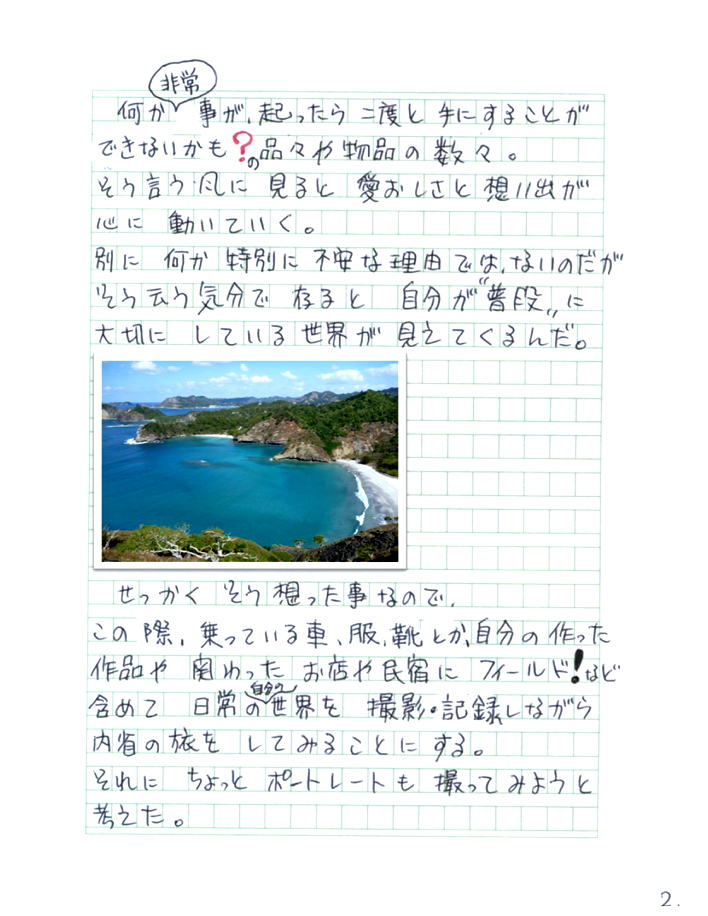 何か非常事が、起ったら二度と手にすることが
できないかも?の品々や物品の数々。
そう言う風に見ると愛おしさと想い出が
心に動いていく。
別に何か特別に不安な理由では、ないのだが
そう云う気分で存ると自分が〝普段〟に
大切にしている世界が見えてくるんだ。
せっかくそう想った事なので、
この際、乗っている車、服、靴とか、自分の作った
作品や関わったお店や民宿にフィールド!など
含めて日常の自分の世界を撮影・記録しながら
内省の旅をしてみることにする。
それにちょっとポートレートも撮ってみようと
考えた。
2.